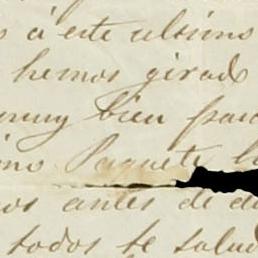 s á este ultimo
hemos girado
muy bien para
imo Paquete
os antes de
todos te salud